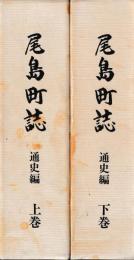 尾島町誌
通史編
上巻
尾島町誌
通史編
下巻